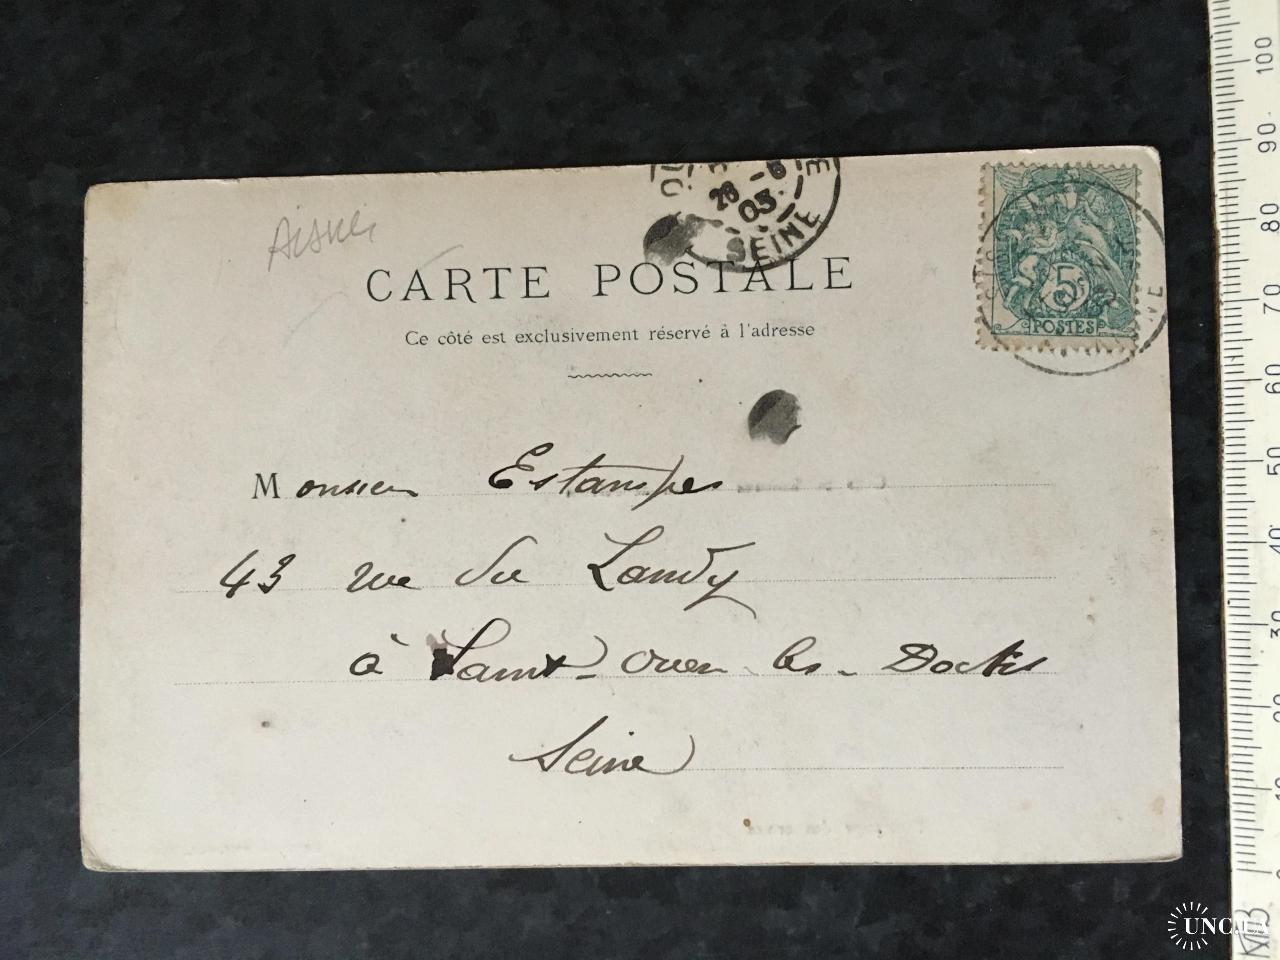 28 -6
03
SEINE
5c
POSTES
Aisne
CARTE POSTALE
Ce côté est exclusivement réservé à l'adresse
Monsieur Estampes
43 rue du Landy
à Saint-Ouen-les-Docks
Seine
100
90
80
70
60
50
40
30
20
10
0
UNC.UA